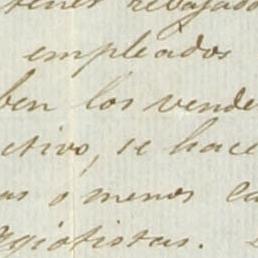 tener rebajado
empleados
ben los vende
ctivo, se hace
as o menos ca
agiotistas.